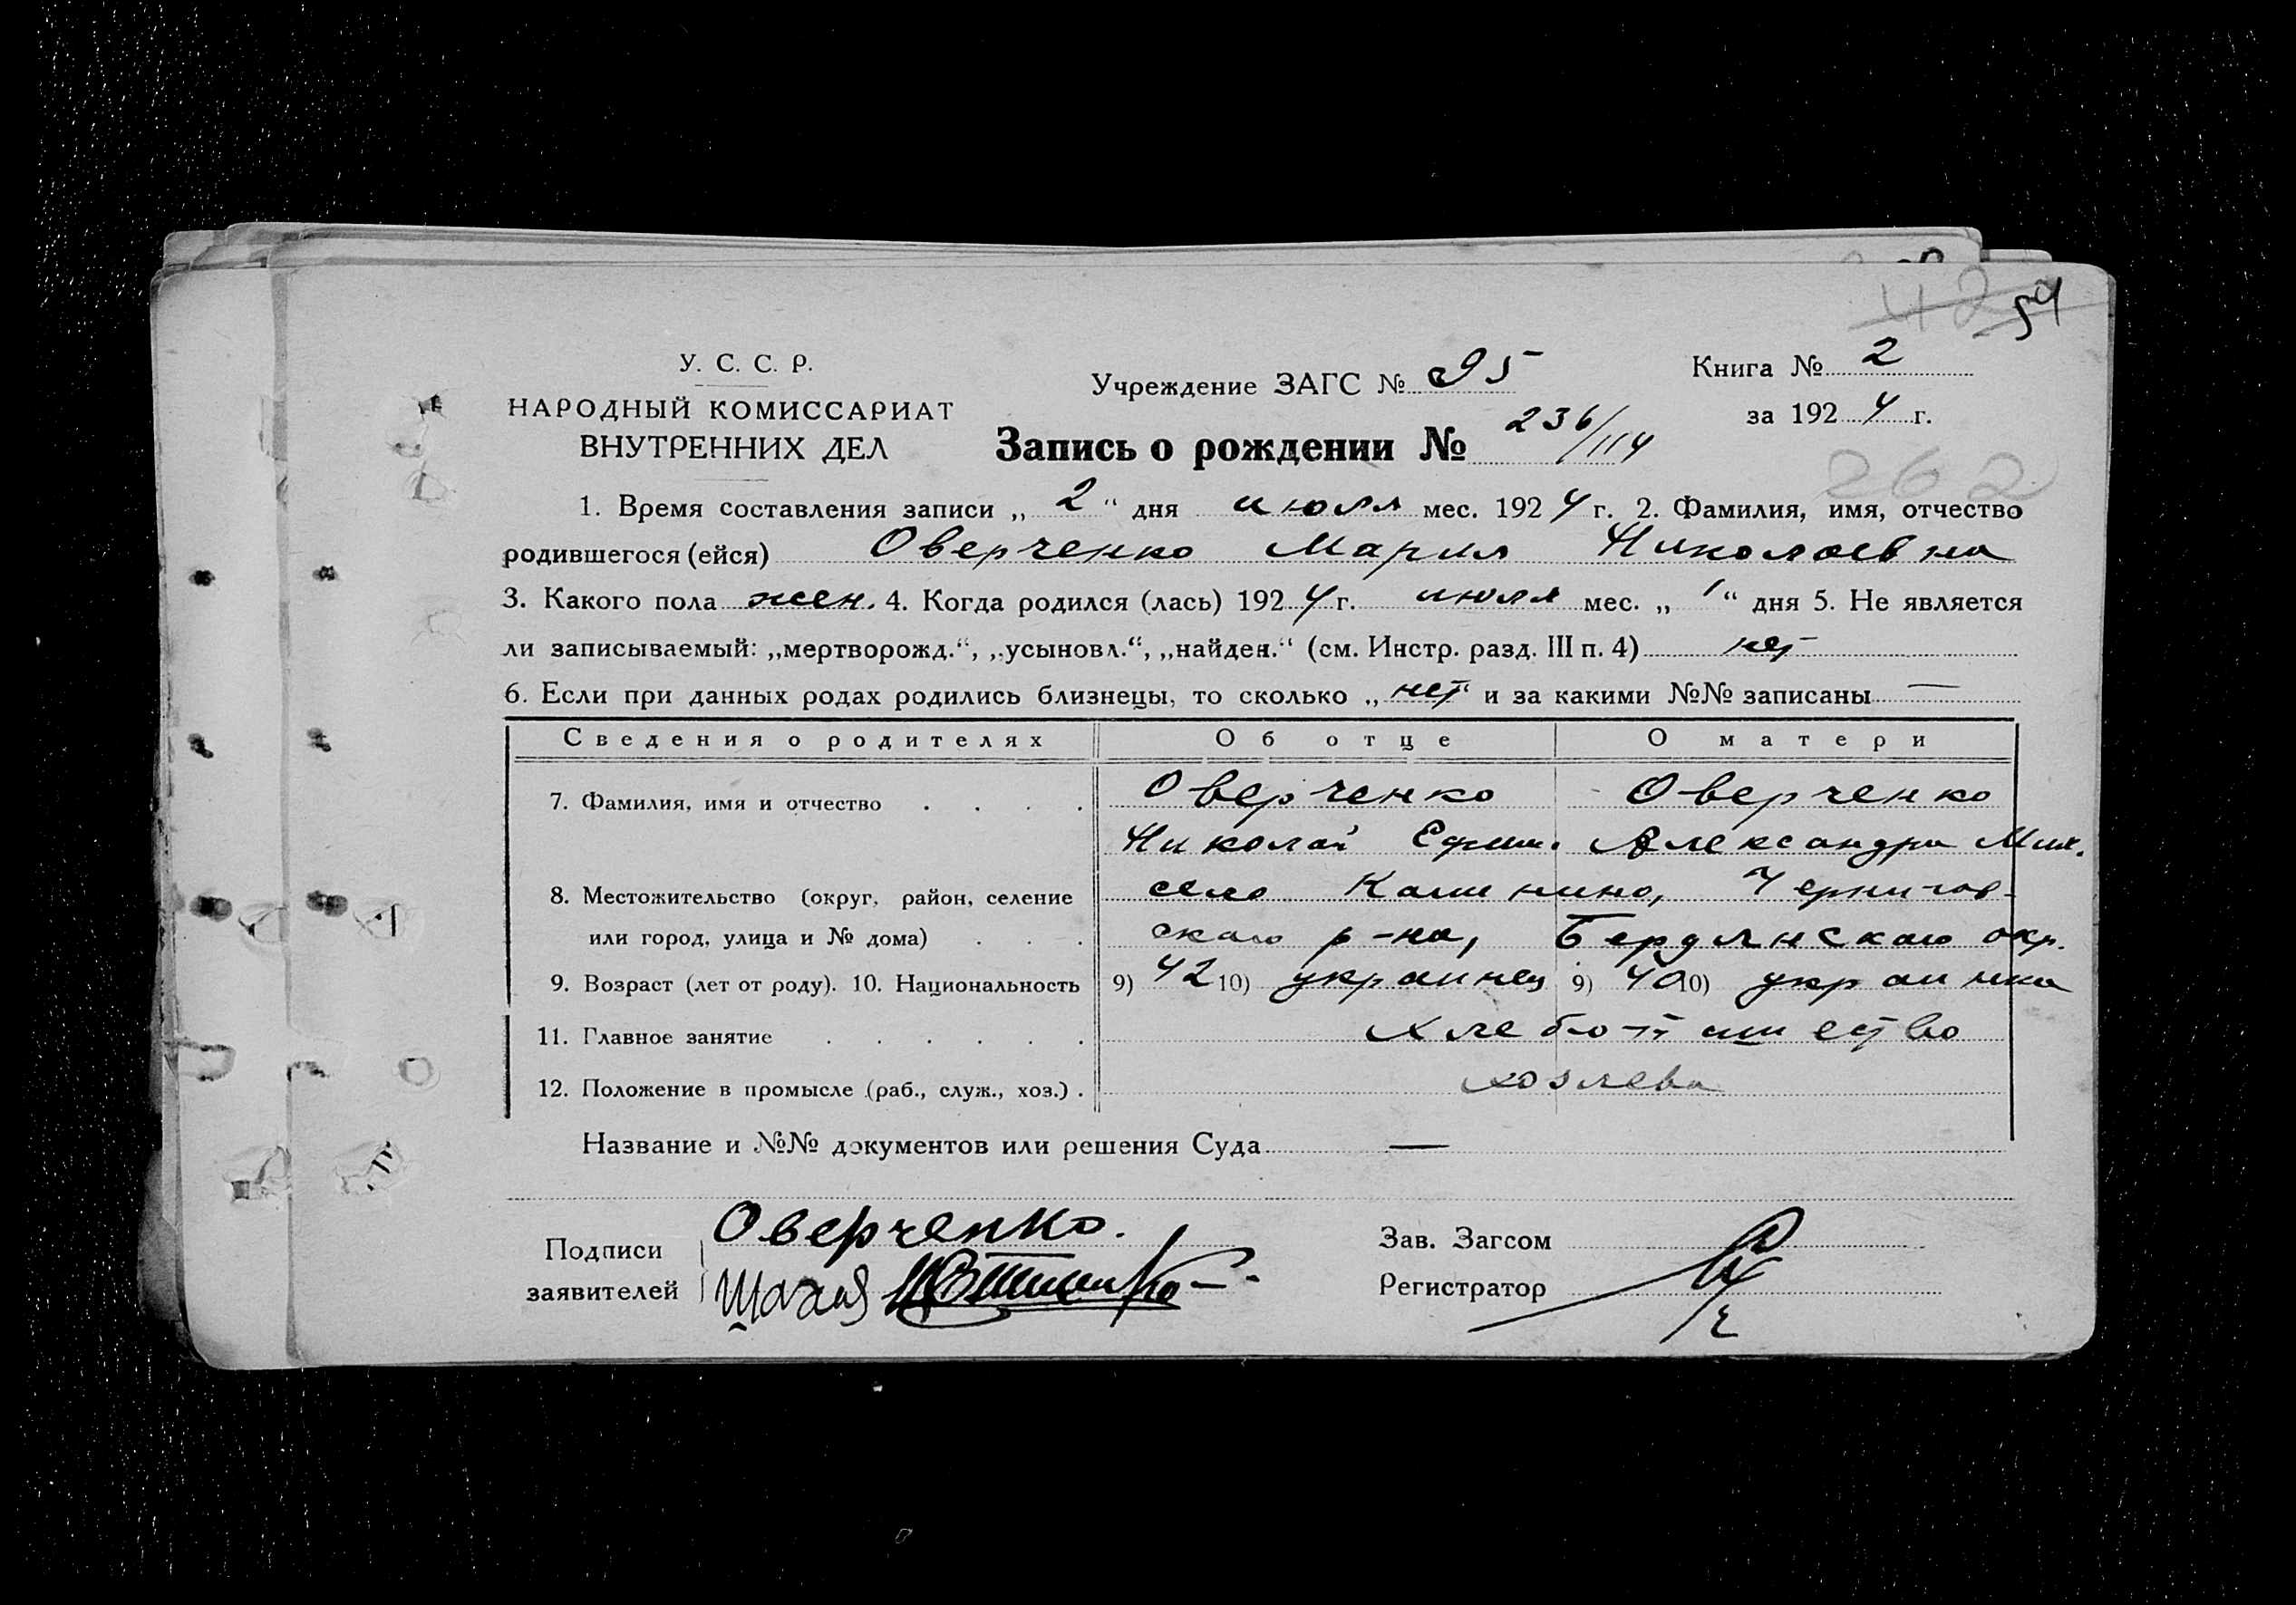 54
У. С. С. Р.
НАРОДНЫЙ КОМИССАРИАТ
ВНУТРЕННИХ ДЕЛ
Учреждение ЗАГС № 95
Книга № 2
за 1924 г.
Запись о рождении № 236/114
262
1. Время составления записи „2“ дня июля мес. 1924 г. 2. Фамилия, имя, отчество
родившегося (ейся) Оверченко Мария Николаевна
3. Какого пола жен. 4. Когда родился (лась) 1924 г. июля мес. „1“ дня 5. Не является
ли записываемый: „мертворожд.“, „усыновл.“, „найден.“ (см. Инстр. разд. III п. 4) нет
6. Если при данных родах родились близнецы, то сколько „нет“ и за какими №№ записаны —
Сведения о родителях Об отце О матери
7. Фамилия, имя и отчество . . . . Оверченко Оверченко
Николай Ефим. Александра Мих.
8. Местожительство (округ, район, селение село Калинино, Чернигов-
или город, улица и № дома) . . . ского р-на, Бердянского окр.
9. Возраст (лет от роду). 10. Национальность 9) 42 10) украинец 9) 40 10) украинка
11. Главное занятие . . . . . . хлебопашество
12. Положение в промысле (раб., служ., хоз.) . хозяева
Название и №№ документов или решения Суда —
Подписи
заявителей
Оверченко.
Зав. Загсом
Регистратор